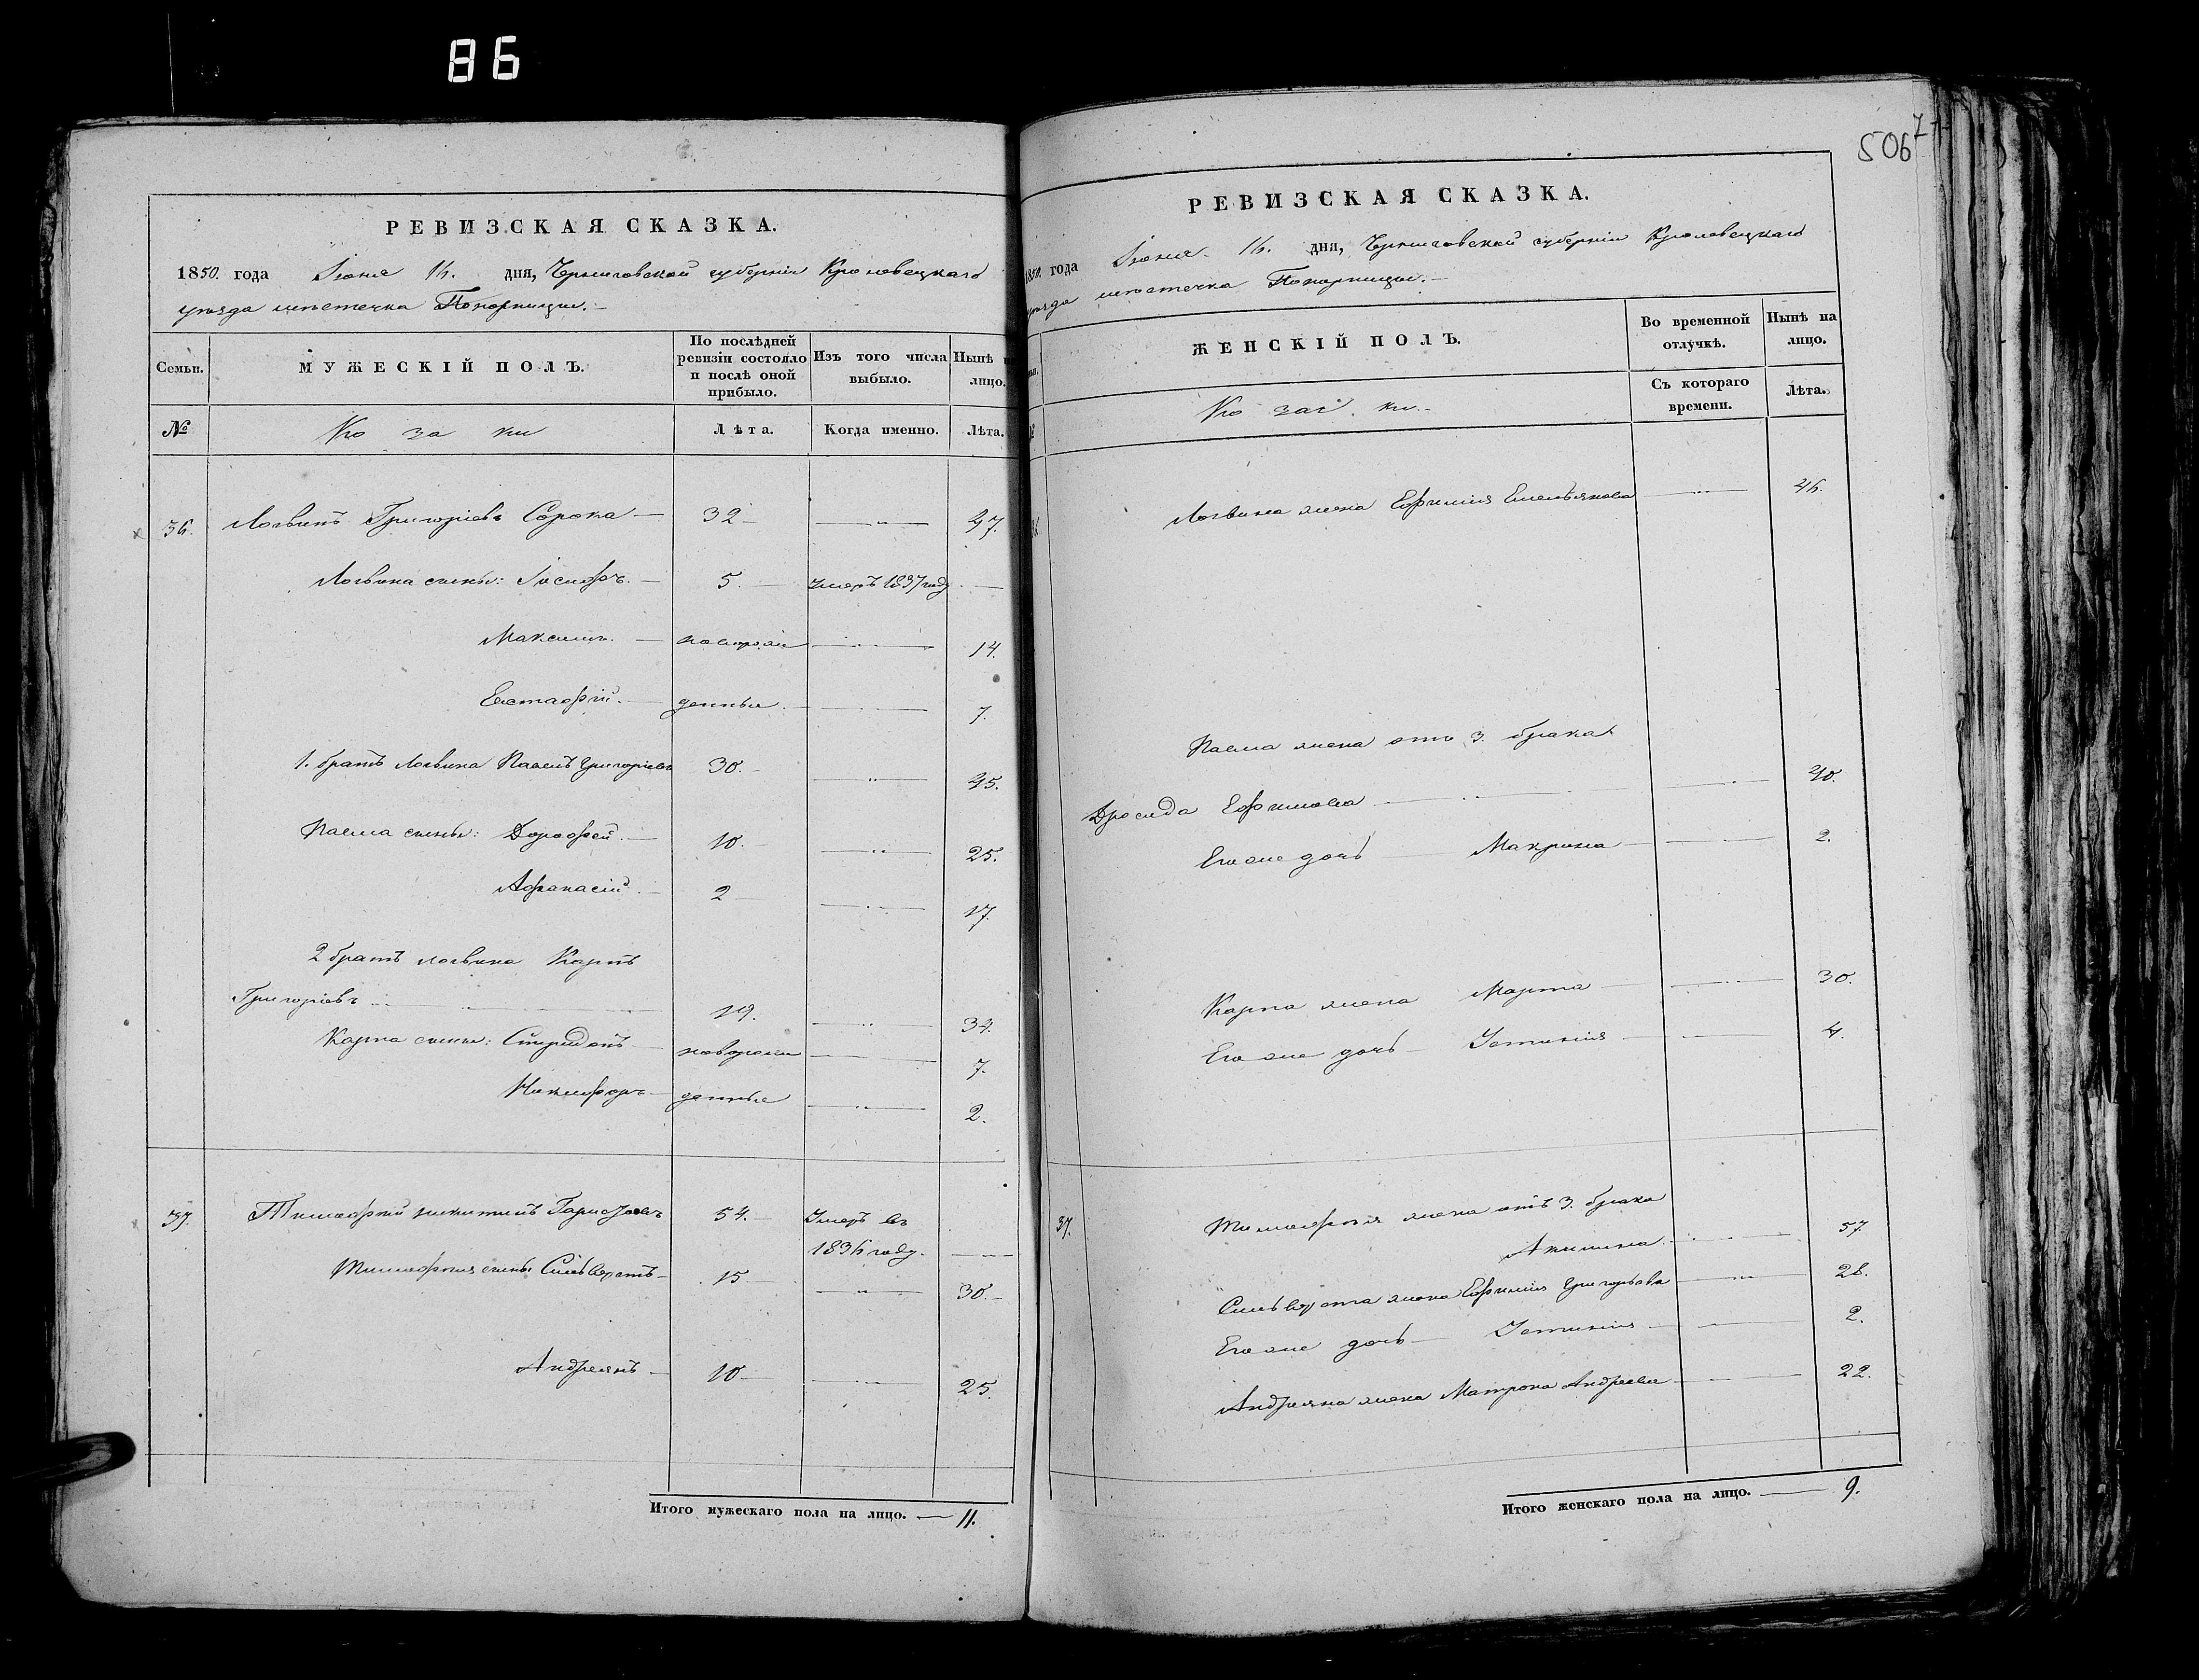 86
506
РЕВИЗСКАЯ СКАЗКА.
1850. года Іюня 16. дня, Черниговской губерніи Кролевецкаго
уѣзда мѣстечка Понорницы.
Семьи.
МУЖЕСКІЙ ПОЛЪ.
По послѣдней ревизіи состояло и послѣ оной прибыло.
Изъ того числа выбыло.
Нынѣ на лицо.
№
Козаки
Лѣта.
Когда именно.
Лѣта.
36. Логвинъ Григоріевъ Сорока 32 47.
Логвина сыны: Іосифъ. 5. умеръ 1837 году
Максимъ. новорож 14.
Евстафій. денные 7.
1. братъ Логвина Павелъ Григоріевъ 30. 45.
Павла сыны: Дорофей. 10. 25.
Афанасій. 2 17.
2 братъ Логвина Карпъ
Григоріевъ 19. 34.
Карпа сыны: Спиридонъ новорож 7.
Никифоръ денные 2.
37. Тимофей Никитинъ 54. Умеръ въ
1836 году.
Тимофея сыны Сильвестръ 15 30.
Андреянъ 10 25.
Итого мужескаго пола на лицо. 11.
РЕВИЗСКАЯ СКАЗКА.
1850. года Іюня 16. дня, Черниговской губерніи Кролевецкаго
уѣзда мѣстечка Понорницы.
ЖЕНСКІЙ ПОЛЪ.
Во временной отлучкѣ.
Нынѣ на лицо.
Козачки.
Съ котораго времени.
Лѣта.
36. Логвина жена Ефимія Емельянова 46.
Павла жена отъ 3. брака
Дросида Ефимова 40.
Его же дочь Макрина 2.
Карпа жена Марта 30.
Его же дочь Устинія 4.
37. Тимофея жена отъ 3. брака
Акилина 57
Сильвестра жена Ефимія Григорьева 28.
Его же дочь Устинія 2.
Андреяна жена Матрона Андреева 22.
Итого женскаго пола на лицо. 9.